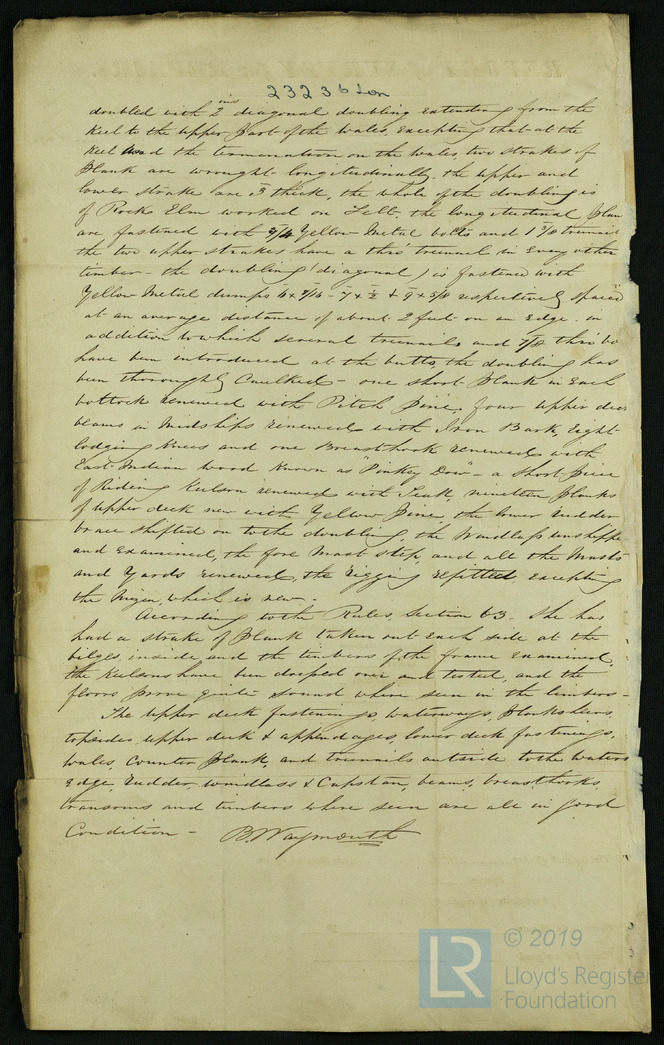 23236 Lon
doubled with 2 ins diagonal doubling extending from the
Keel to the upper part of the wales, excepting that at the
Keel and the termination on the wales, two strakes of
plank are wrought longitudinally, the upper and
lower strake are 3 thick, the whole of the doubling is
of Rock Elm worked on Felt, the longitudinal plan
are fastened with 3/4 Yellow Metal bolts and 1 3/8 treenails
the two upper strakes have a thro' treenail in every other
timber - the doubling (diagonal) is fastened with
Yellow Metal dumps 6 x 7/16 - 7 x 1/2 & 9 x 5/8 respectively spaced
at an average distance of about 2 feet on an edge. in
addition to which several treenails and 7/8 thro' bo
have been introduced at the butts, the doubling has
been thoroughly Caulked - one short plank in each
bottock renewed with Pitch pine, four upper deck
beams in Midships renewed with Iron Bark, Eight
lodging knees and one Breasthook renewed with
East Indian wood known as "Pinkey Dow" - a short piece
of Riding Kelson renewed with Teak, nineteen planks
of upper deck new with Yellow pine, the lower Rudder
brace shifted on to the doubling, the Windlass unshippe
and Examined, the fore Mast step, and all the Masts
and Yards renewed, the rigging refitted, excepting
the Mizen, which is new.
According to the Rules, Section 63. She has
had a strake of plank taken out each side at the
bilges, inside and the timbers of the frame examined,
the Keelsons have been dropped over and tested, and the
floors prove quite sound where seen in the limbers -
The upper deck fastenings, waterways, planksheers,
topsides, upper deck & appendages, lower deck fastenings,
wales, Counter plank, and treenails outside to the waters
Edge, Rudder, windlass & Capstan, beams, breasthooks,
transoms and timbers where seen are all in good
Condition - B. Waymouth
LR © 2019
Lloyd's Register
Foundation